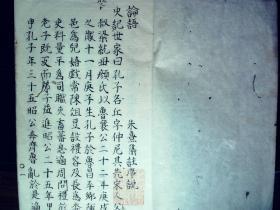 論語
朱熹集註序說
史記世家曰孔子名丘字仲尼其先宋人父
叔梁紇母顏氏以魯襄公二十二年庚戌
之歲十一月庚子生孔子於魯昌平鄉陬
邑為兒嬉戲常陳俎豆設禮容及長為委
吏料量平為司職吏畜蕃息適周問禮於
老子既反而弟子益進昭公二十五年甲
申孔子年三十五昭公奔齊魯亂於是適